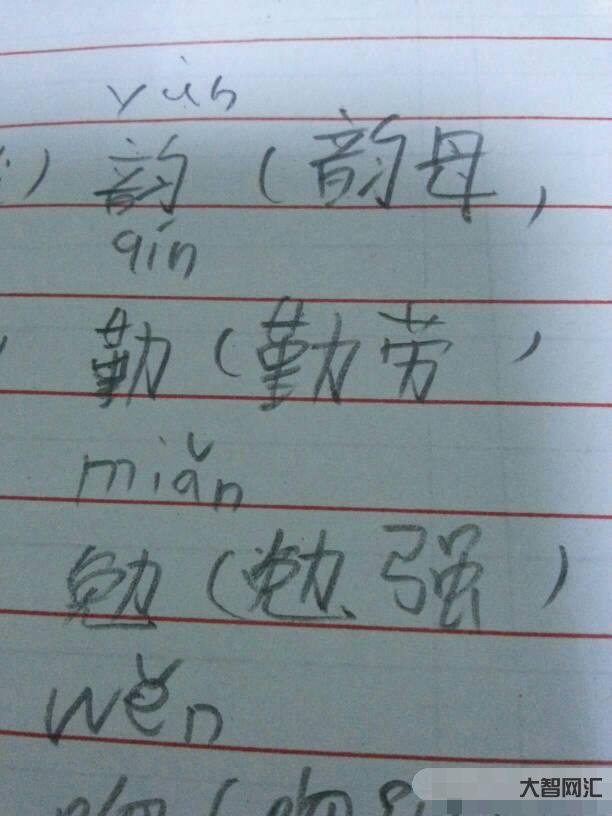 yùn
) 韵 (韵母,
qín
勤 (勤劳)
miǎn
勉 (勉强)
wěn
吻 (吻
大智网汇